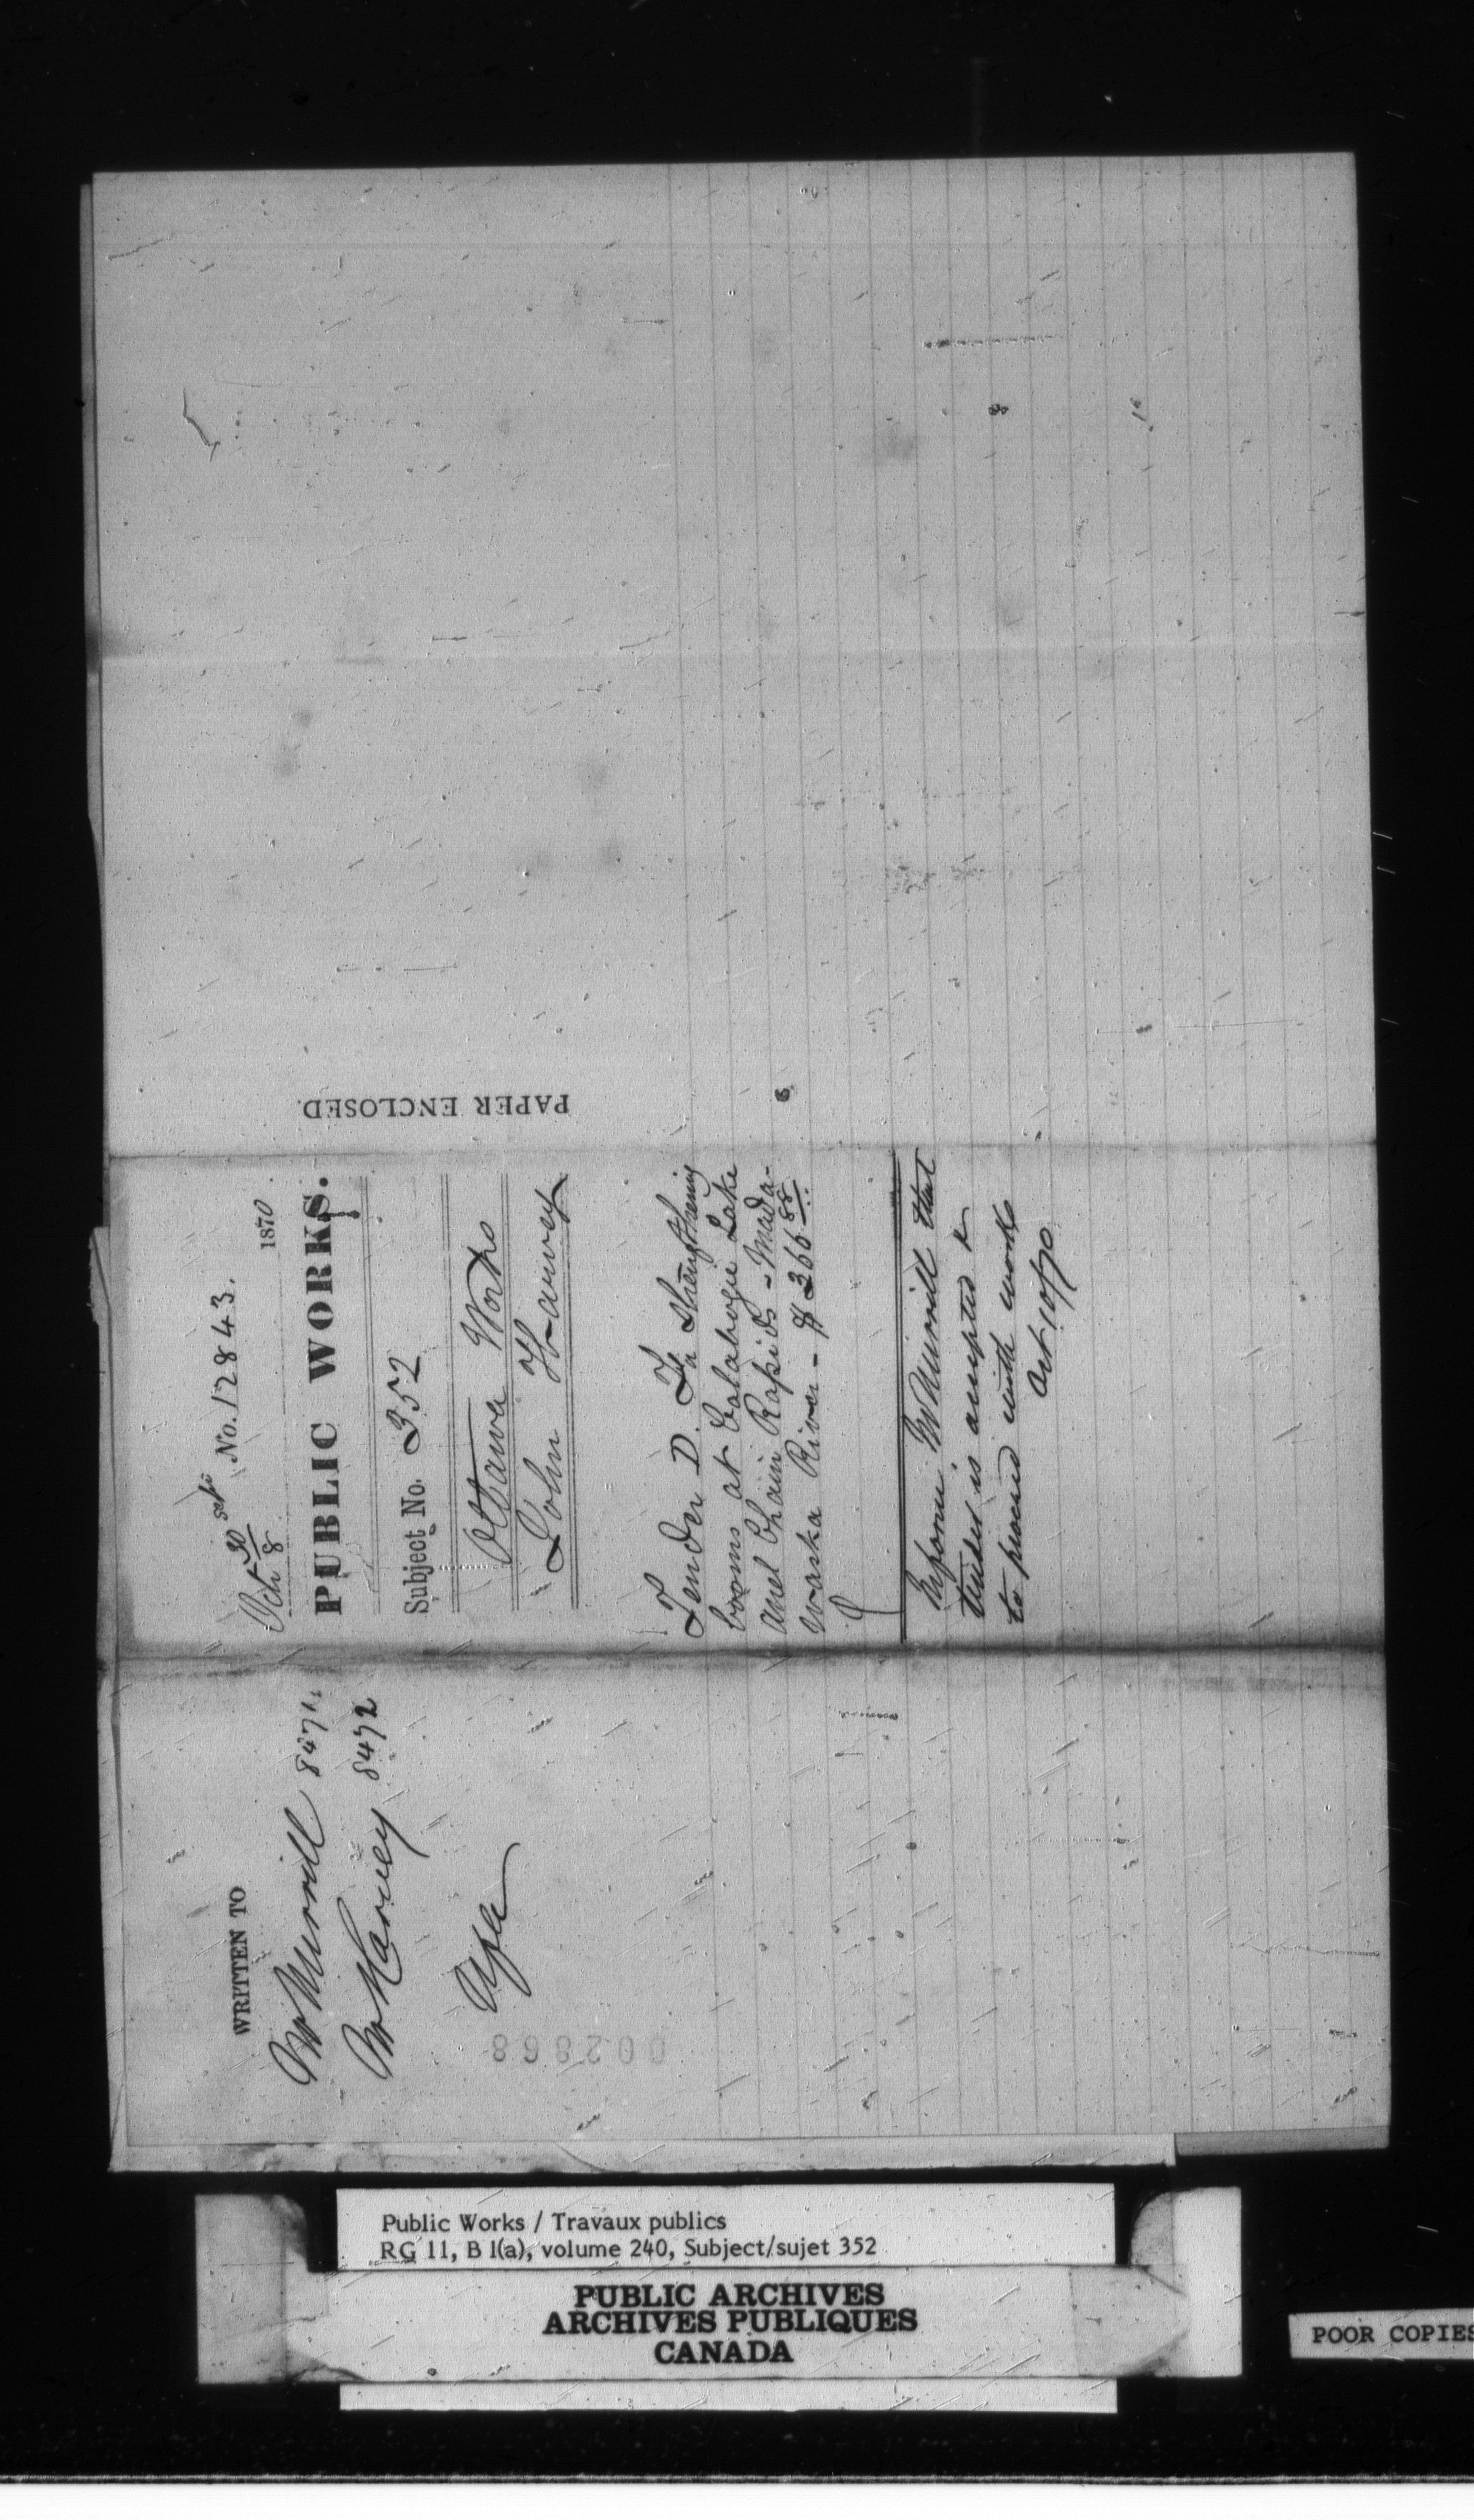 WRITTEN TO
Mr Murrill 8471
Mr Harvey 8472
002868
30 Sept No. 12843.
Oct 8 1870
PUBLIC WORKS.
Subject No. 352
Ottawa Works
John Harvey
Tender D. For strengthening
booms at Calabogie Lake
and Chain Rapids - Mada-
waska River - $366 88
Inform Mr Murrill that
tender is accepted &
to proceed with works
Oct 10/70
PAPER ENCLOSED.
Public Works / Travaux publics
RG 11, B 1(a), volume 240, Subject/sujet 352
PUBLIC ARCHIVES
ARCHIVES PUBLIQUES
CANADA
POOR COPIES